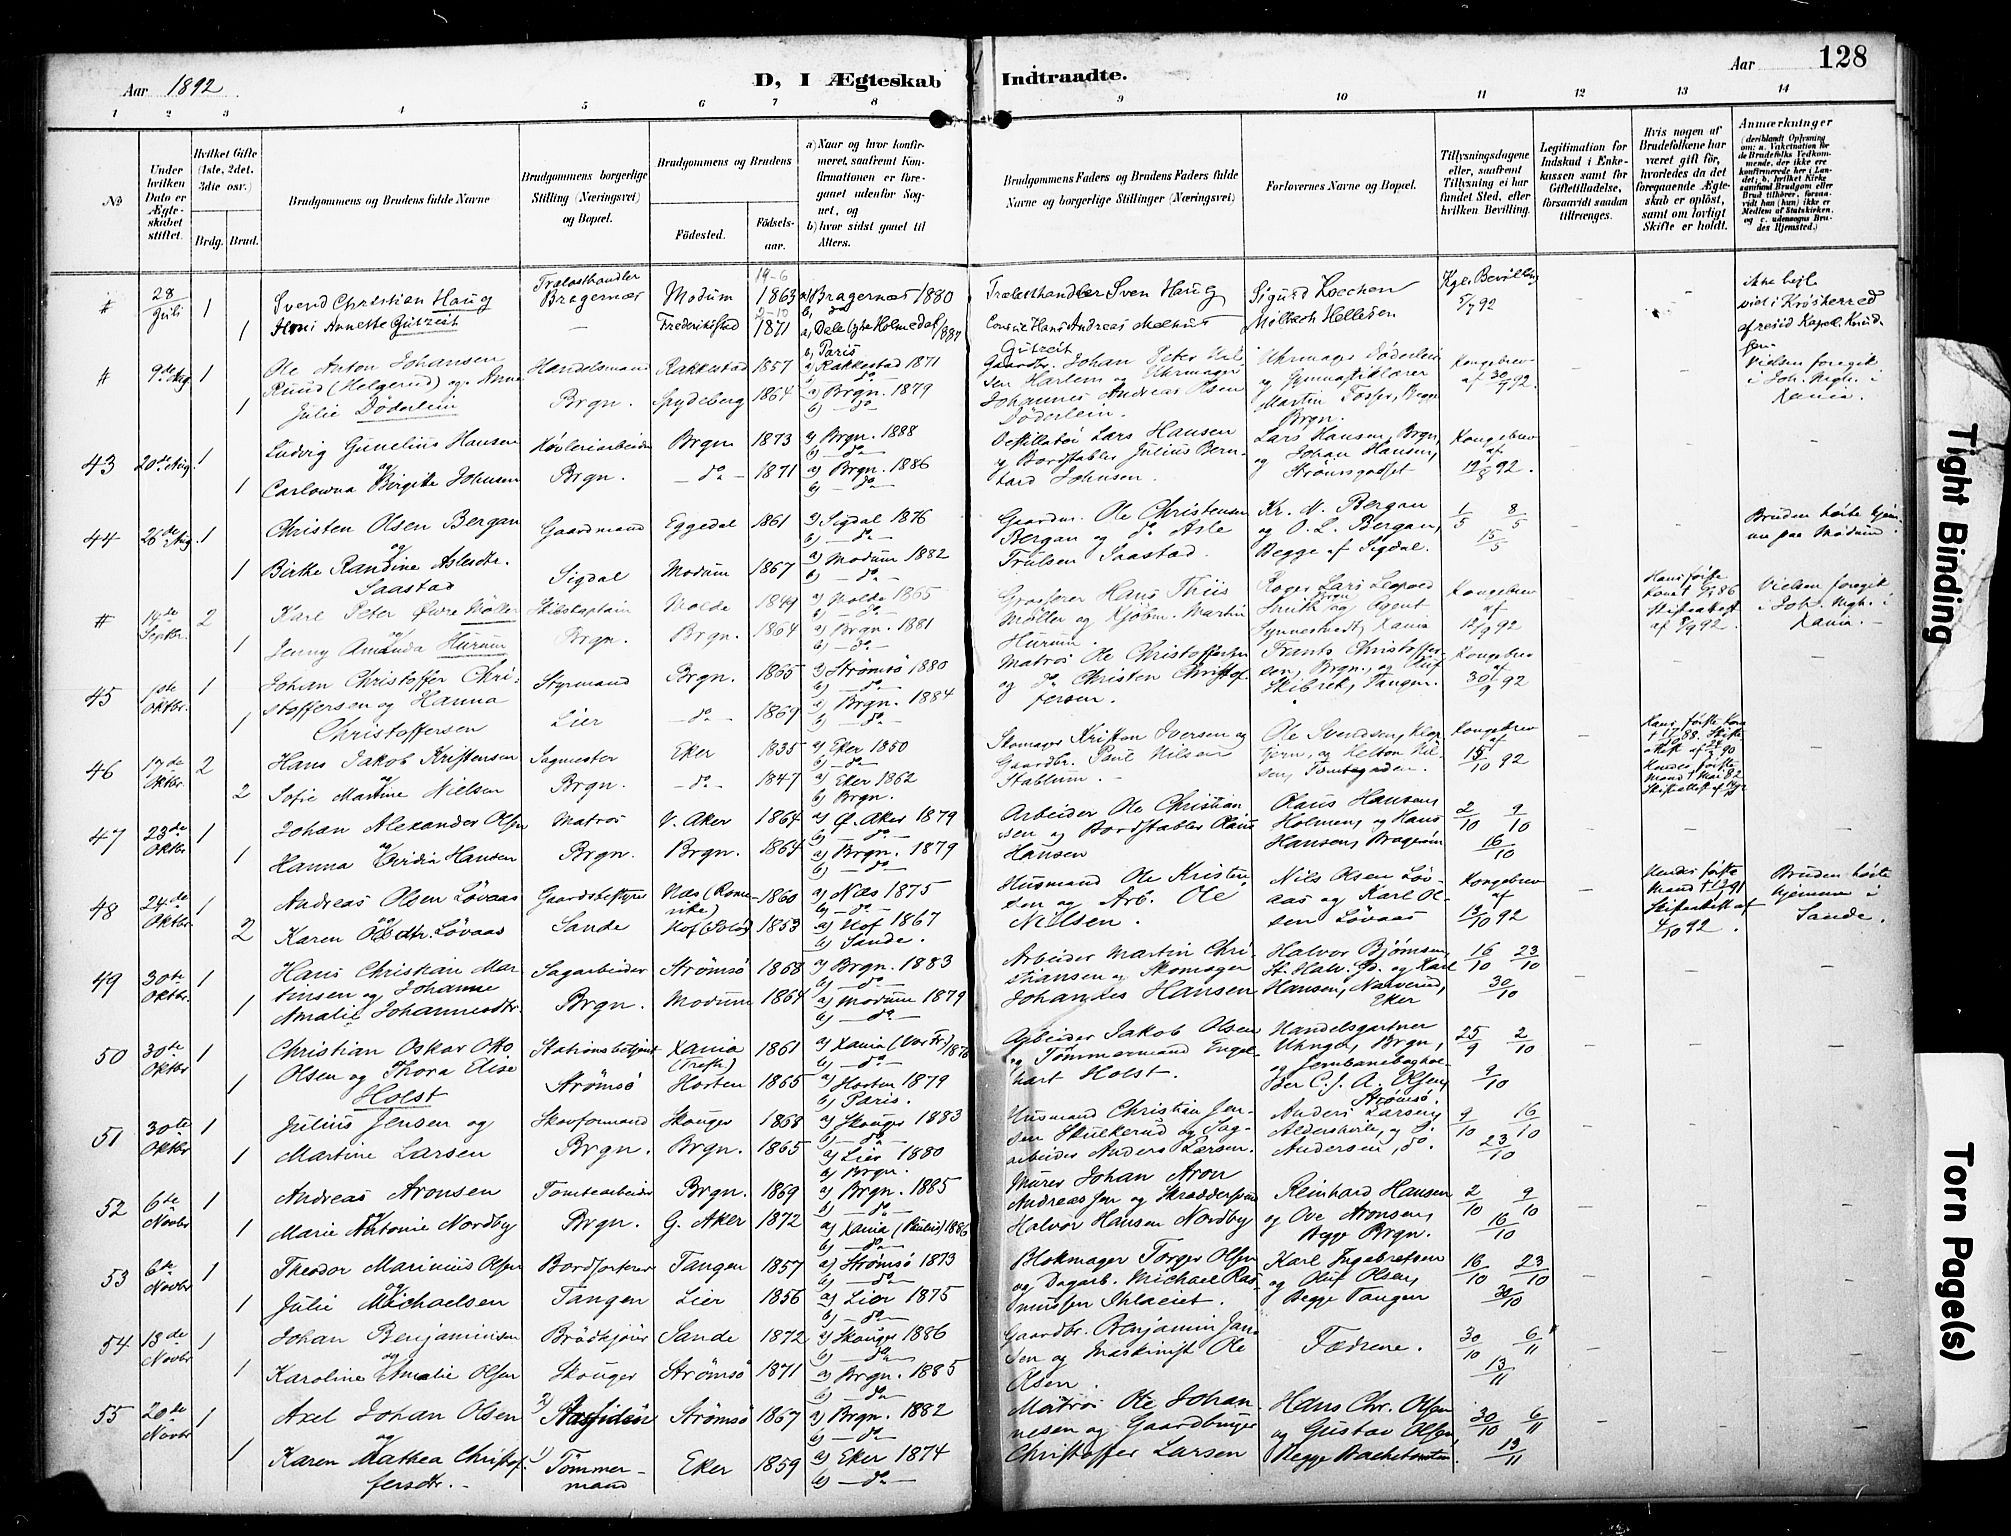 Aar 1892
D, I Ægteskab Indtraadte.
Aar 128
1 2 3 4 5 6 7 8 9 10 11 12 13 14
No
Under hvilken Dato er Ægteskabet stiftet.
Hvilket Gifte (1ste, 2det, 3die osv.)
Brdg. Brud.
Brudgommens og Brudens fulde Navne
Brudgommens borgerlige Stilling (Næringsvei) og Bopæl.
Brudgommens og Brudens
Fødested. Fødselsaar.
a) Naar og hvor konfirmeret, saafremt Konfirmationen er foregaaet udenfor Sognet, og
b) hvor sidst gaaet til Alters.
Brudgommens Faders og Brudens Faders fulde Navne og borgerlige Stillinger (Næringsvei)
Forlovernes Navne og Bopæl.
Tillysningsdagene eller, saafremt Tillysning ei har fundet Sted, efter hvilken Bevilling.
Legitimation for Indskud i Enkekassen samt for Giftetilladelse, forsaavidt saadan tiltrænges.
Hvis nogen af Brudefolkene har været gift før, hvorledes da det foregaaende Ægteskab er opløst, samt om lovligt Skifte er holdt.
Anmærkninger (deriblandt Oplysning om: a. Vakcination for de Brudefolks Vedkommende, der ikke ere konfirmerede her i Landet; b. hvilket Kirkesamfund Brudgom eller Brud tilhører, forsaavidt han (hun) ikke er Medlem af Statskirken, og c. udensogns Brudes Hjemsted.)
# 28/Juli 1 Svend Christian Haug Trælasthandler Bragernæs Modum 19-6 1863 a) Bragernæs 1880 b) do Trælasthandler Sven Haug Sigurd Koechen Kgl. Bevilling 5/7 92
1 Annette Gutzeit Frederikstad 2-10 1871 a) Dale Holmedal 1887 b) Paris Consul Hans Andreas Melhus Gutzeit Mølbach Hellesen
viet i Krødsherred af resid. Kapel. Knudsen
# 9de Aug. 1 Ole Anton Johansen Ruud (Helgerud) og Anne Handelsmand Rakkestad 1857 a) Rakkestad 1871 b) do Gaardbr. Johan Peter Nilsen Harlem og Uhrmager Uhrmager Døderlein Kongebrev af 30/7 92.
1 Julie Døderlein Brgn. Spydeberg 1864 a) Brgn. 1879 b) do Johannes Andreas Olsen Døderlein. og Gymnastiklærer Martin Fosser, Brgn.
Vielsen foregik i Joh. Mgh. i Xania.
43 20de Aug. 1 Ludvig Gunelius Hansen Høvleriarbeider Brgn 1873 a) Brgn. 1888 b) do Destillatør Lars Hansen Lars Hansen, Brgn, Kongebrev af 12/8 92.
1 og Carlowna Birgitte Johnsen Brgn. do 1871 a) Brgn. 1886 b) do og Bordstabler Julius Bernhard Johnsen. og Johan Hansen, Strømsgodset
44 26de Aug. 1 Christen Olsen Bergan Gaardmand Eggedal 1861 a) Sigdal 1876 b) do Gaardm. Ole Christensen Bergan og do Asle Kr. N. Bergan 1/5 8/5 15/5
1 og Birthe Randine Aslesdtr. Saastad Sigdal Modum 1867 a) Modum 1882 b) do Trulsen Saastad. og O. L. Bergan, Begge af Sigdal.
Bruden hørte hjemme paa Modum.
# 14de Septbr. 2 Karl Peter Øwre Møller Skibskaptain Molde 1849 a) Molde 1865 b) do Grosserer Hans Thiis Møller og Kjøbm. Martin Hurum. Kongebrev af 12/9 92
1 og Jenny Amanda Hurum Brgn. Brgn. 1864 a) Brgn. 1881 b) do Smith og Agent Synnestvedt, Xania
Skifteattest af 5/9 92. Vielsen foregik i Joh. Mgh. i Xania.
45 1ste Oktbr. 1 Johan Christoffer Christoffersen og Hanna Styrmand Brgn. 1865 a) Strømsø 1880 b) do Matros Ole Christoffersen Frants Christoffersen, Brgn., og Oluf Kongebrev af 30/9 92
1 Christoffersen Lier do 1869 a) Brgn. 1884 b) do og do Christen Christoffersen Skibret, Tangen.
46 17de Oktbr. 2 Hans Jakob Kristensen Sagmester Eker 1835 a) Eker 1850 b) do Skomager Kristen Iversen og Ole Svendsen, Kongebrev af 15/10 92
2 og Sofie Martine Nielsen Brgn. do 1847 a) Eker 1862 b) Brgn. Gaardbr. Paul Nilsen Stablum. og Helton Nilsen, Tomtegaden.
47 23de Oktbr 1 Johan Alexander Olsen Matros V. Aker 1864 a) Ø. Aker 1879 b) do Arbeider Ole Christiansen og Bordstabler Olaus Hansen Olaus Hansen, Holmen, og Hans Hansen, Bragerøen 2/10 9/10 16/10
1 og Hanna Hansen Brgn. Brgn. 1864 a) Brgn. 1879 b) do
48 24de Oktbr. 1 Andreas Olsen Løvaas Gaardsbestyrer Næs (Romerike) 1860 a) Næs 1875 b) do Husmand Ole Kristensen og Arb. Ole Nilsen. Nils Olsen Løvaas og Karl Olsen Løvaas Kongebrev af 13/10 92
2 og Karen Olsdtr. Løvaas Sande Hof (Solør) 1853 a) Hof 1867 b) Sande.
Bruden hørte hjemme i Sande.
49 30te Oktbr. 1 Hans Christian Martinsen og Johanne Sagarbeider Strømsø 1868 a) Brgn. 1883 b) do Arbeider Martin Christiansen og Skomager Johannes Hansen Halvor Bjørnsen, St. Halv. Gd. og Karl Hansen, Narverud, Eker 16/10 23/10 30/10
1 Amalie Johannesdtr. Brgn. Modum 1864 a) Modum 1879 b) do
50 30te Oktbr 1 Christian Oskar Otto Olsen og Thora Elise Stationsbetjent Xania (Trefk.) 1861 a) Xania (Vor Fr.) 1876 b) do Arbeider Jakob Olsen og Tømmermand Engelhart Holst. Handelsgartner Unger, Brgn, og Jernbanebogholder C. J. A. Olsen, Strømsø. 25/9 2/10 9/10
1 Holst Strømsø Horten 1865 a) Horten 1879 b) Paris.
51 30te Oktbr 1 Julius Jensen og Skovformand Skouger 1868 a) Skouger 1883 b) do Husmand Christian Jensen Skulkerud og Sagarbeider Anders Larsen. Anders Larsen, Aldershvile, og S. Andersen, do. 9/10 16/10 23/10
1 Martine Larsen Brgn. Brgn. 1865 a) Lier 1880 b) Brgn.
52 6te Novbr 1 Andreas Aronsen Tomtearbeider Brgn. 1869 a) Brgn. 1885 b) do Murer Johan Aron Andreassen og Skræddersvend Halvor Hansen Nordby Reinhard Hansen og Ove Aronsen, Begge Brgn. 2/10 9/10 16/10
1 og Marie Antonie Nordby Brgn. G. Aker 1872 a) Xania (Paulus) 1886 b) do
53 6te Novbr 1 Theodor Marinius Olsen Bordforter Tangen 1857 a) Strømsø 1873 b) do Blokmager Torger Olsen og Dagarb. Michael Rasmussen Ihlaeiet. Karl Ingebretsen og Oluf Olsen, Begge Tangen 16/10 23/10 30/10
1 og Julie Michaelsen Tangen Lier 1856 a) Lier 1875 b) do
54 13de Novbr 1 Johan Benjaminsen Brødkjører Sande 1872 a) Skouger 1886 b) do Gaardbr. Benjamin Jansen og Maskinist Ole Olsen. Fædrene. 30/10 6/11 13/11
1 og Karoline Amalie Olsen Skouger Strømsø 1871 a) Brgn. 1885 b) do
55 20de Novbr 1 Axel Johan Olsen 2) Aassiden Strømsø 1867 a) Brgn. 1882 b) do Matros Ole Johannesen og Gaardbruger Christoffer Larsen Hans Chr. Olsen og Gustav Olsen, 30/10 6/11 13/11
1 og Karen Mathea Christoffersdtr. 1) Tømmermand Eker 1859 a) Eker 1874 b) do
Tight Binding
Torn Page(s)